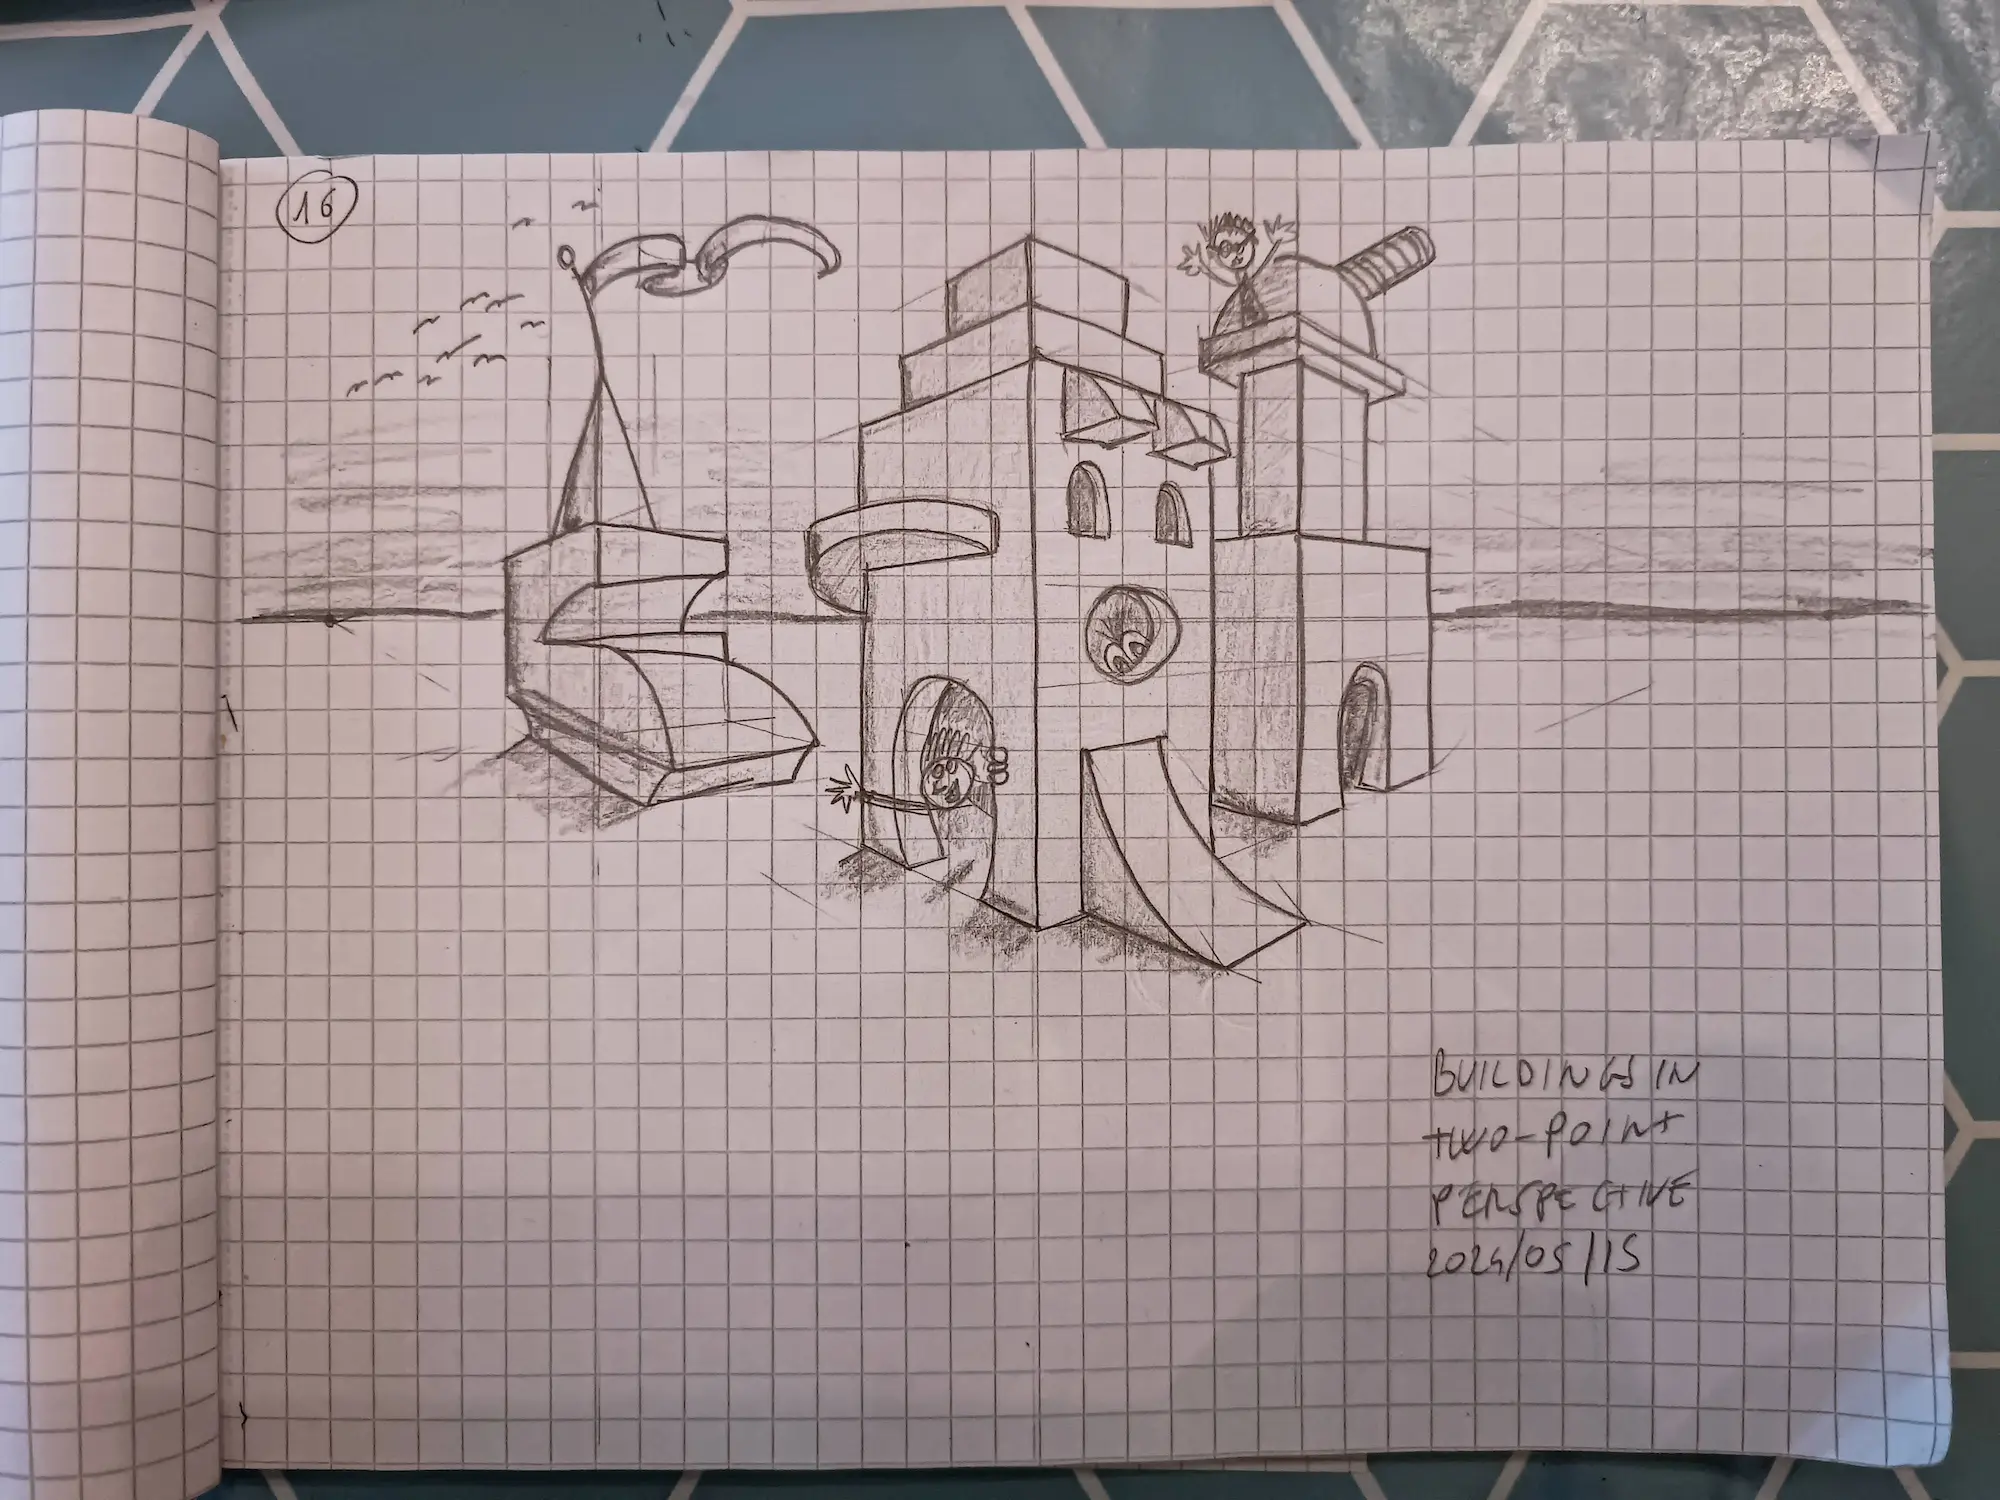 16
BUILDINGS IN
TWO-POINT
PERSPECTIVE
2024/05/15